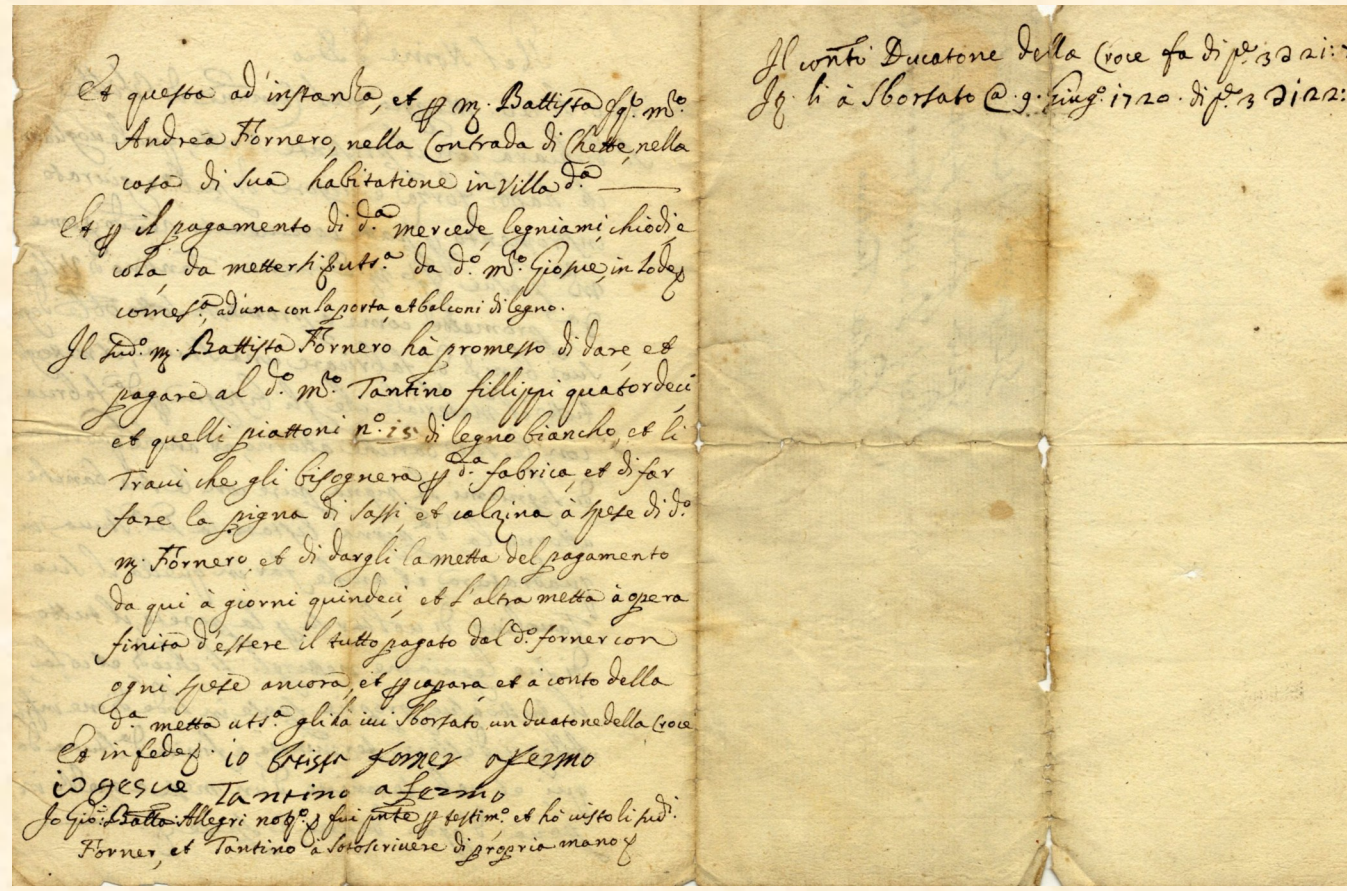 Et questa ad' instanza, et p m. Battista fq.º m.º
Andrea Fornero, nella Contrada di Chette, nella
casa di sua habitatione in Villa d.ª
Et p il pagamento di d.ª mercede, legniami, chiodi, e
cola da mettersi uts.ª da d.º m.º Giosue, in lode
comes.ª, ad una con la porta, et balconi di legno.
Il sud.º m. Battista Fornero hà promesso di dare, et
pagare al d.º m.º Tantino fillippi quatordeci,
et quelli piattoni n.º 15 di legno biancho, et li
Travi che gli bisognera p d.ª fabrica, et di far
fare la pigna di sassi, et calzina à spese di d.º
m. Fornero, et di dargli la metta del pagamento
da qui à giorni quindeci, et l'altra metta à opera
finita d'essere il tutto pagato dal d.º forner con
ogni spese ancora, et p capara, et à conto della
d.ª metta uts.ª gli hà ivi sborsato un ducatone della Croce
Et in fede. io batista forner afermo
io gesue Tantino afermo
Io Gio: Batta Allegri not.º fui pnte p testim.º et hò visto li sud.i
Forner, et Tantino à sotoscrivere di propria mano
Il conti Ducatone della Croce fa di p. 3 d 21:
li à sborsato @ . 9. Giug.º 1720. di p. 3 d i 22: